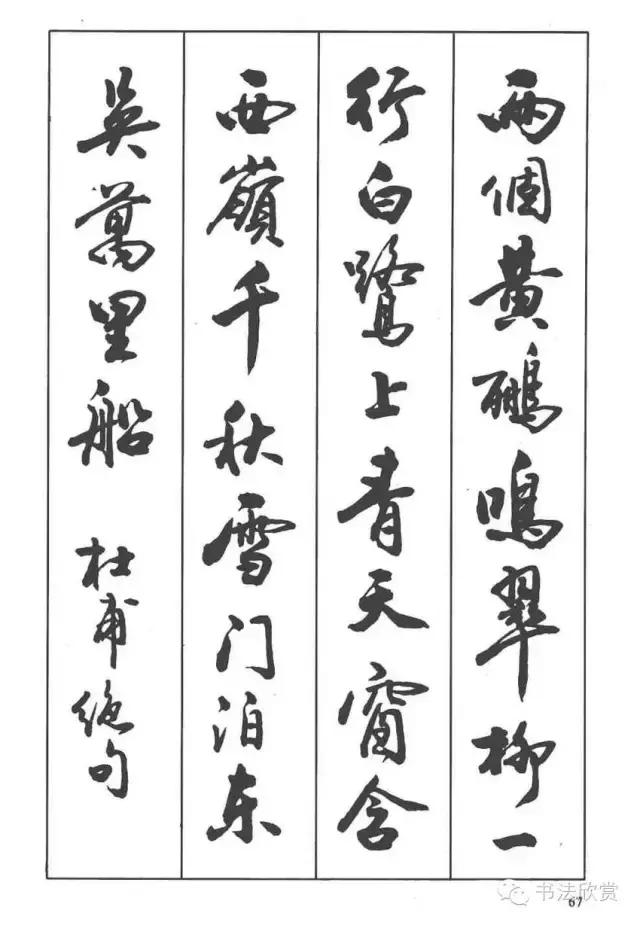 兩個黃鸝鳴翠柳一
行白鷺上青天窗含
西嶺千秋雪门泊东
吳萬里船 杜甫絶句
书法欣赏
67